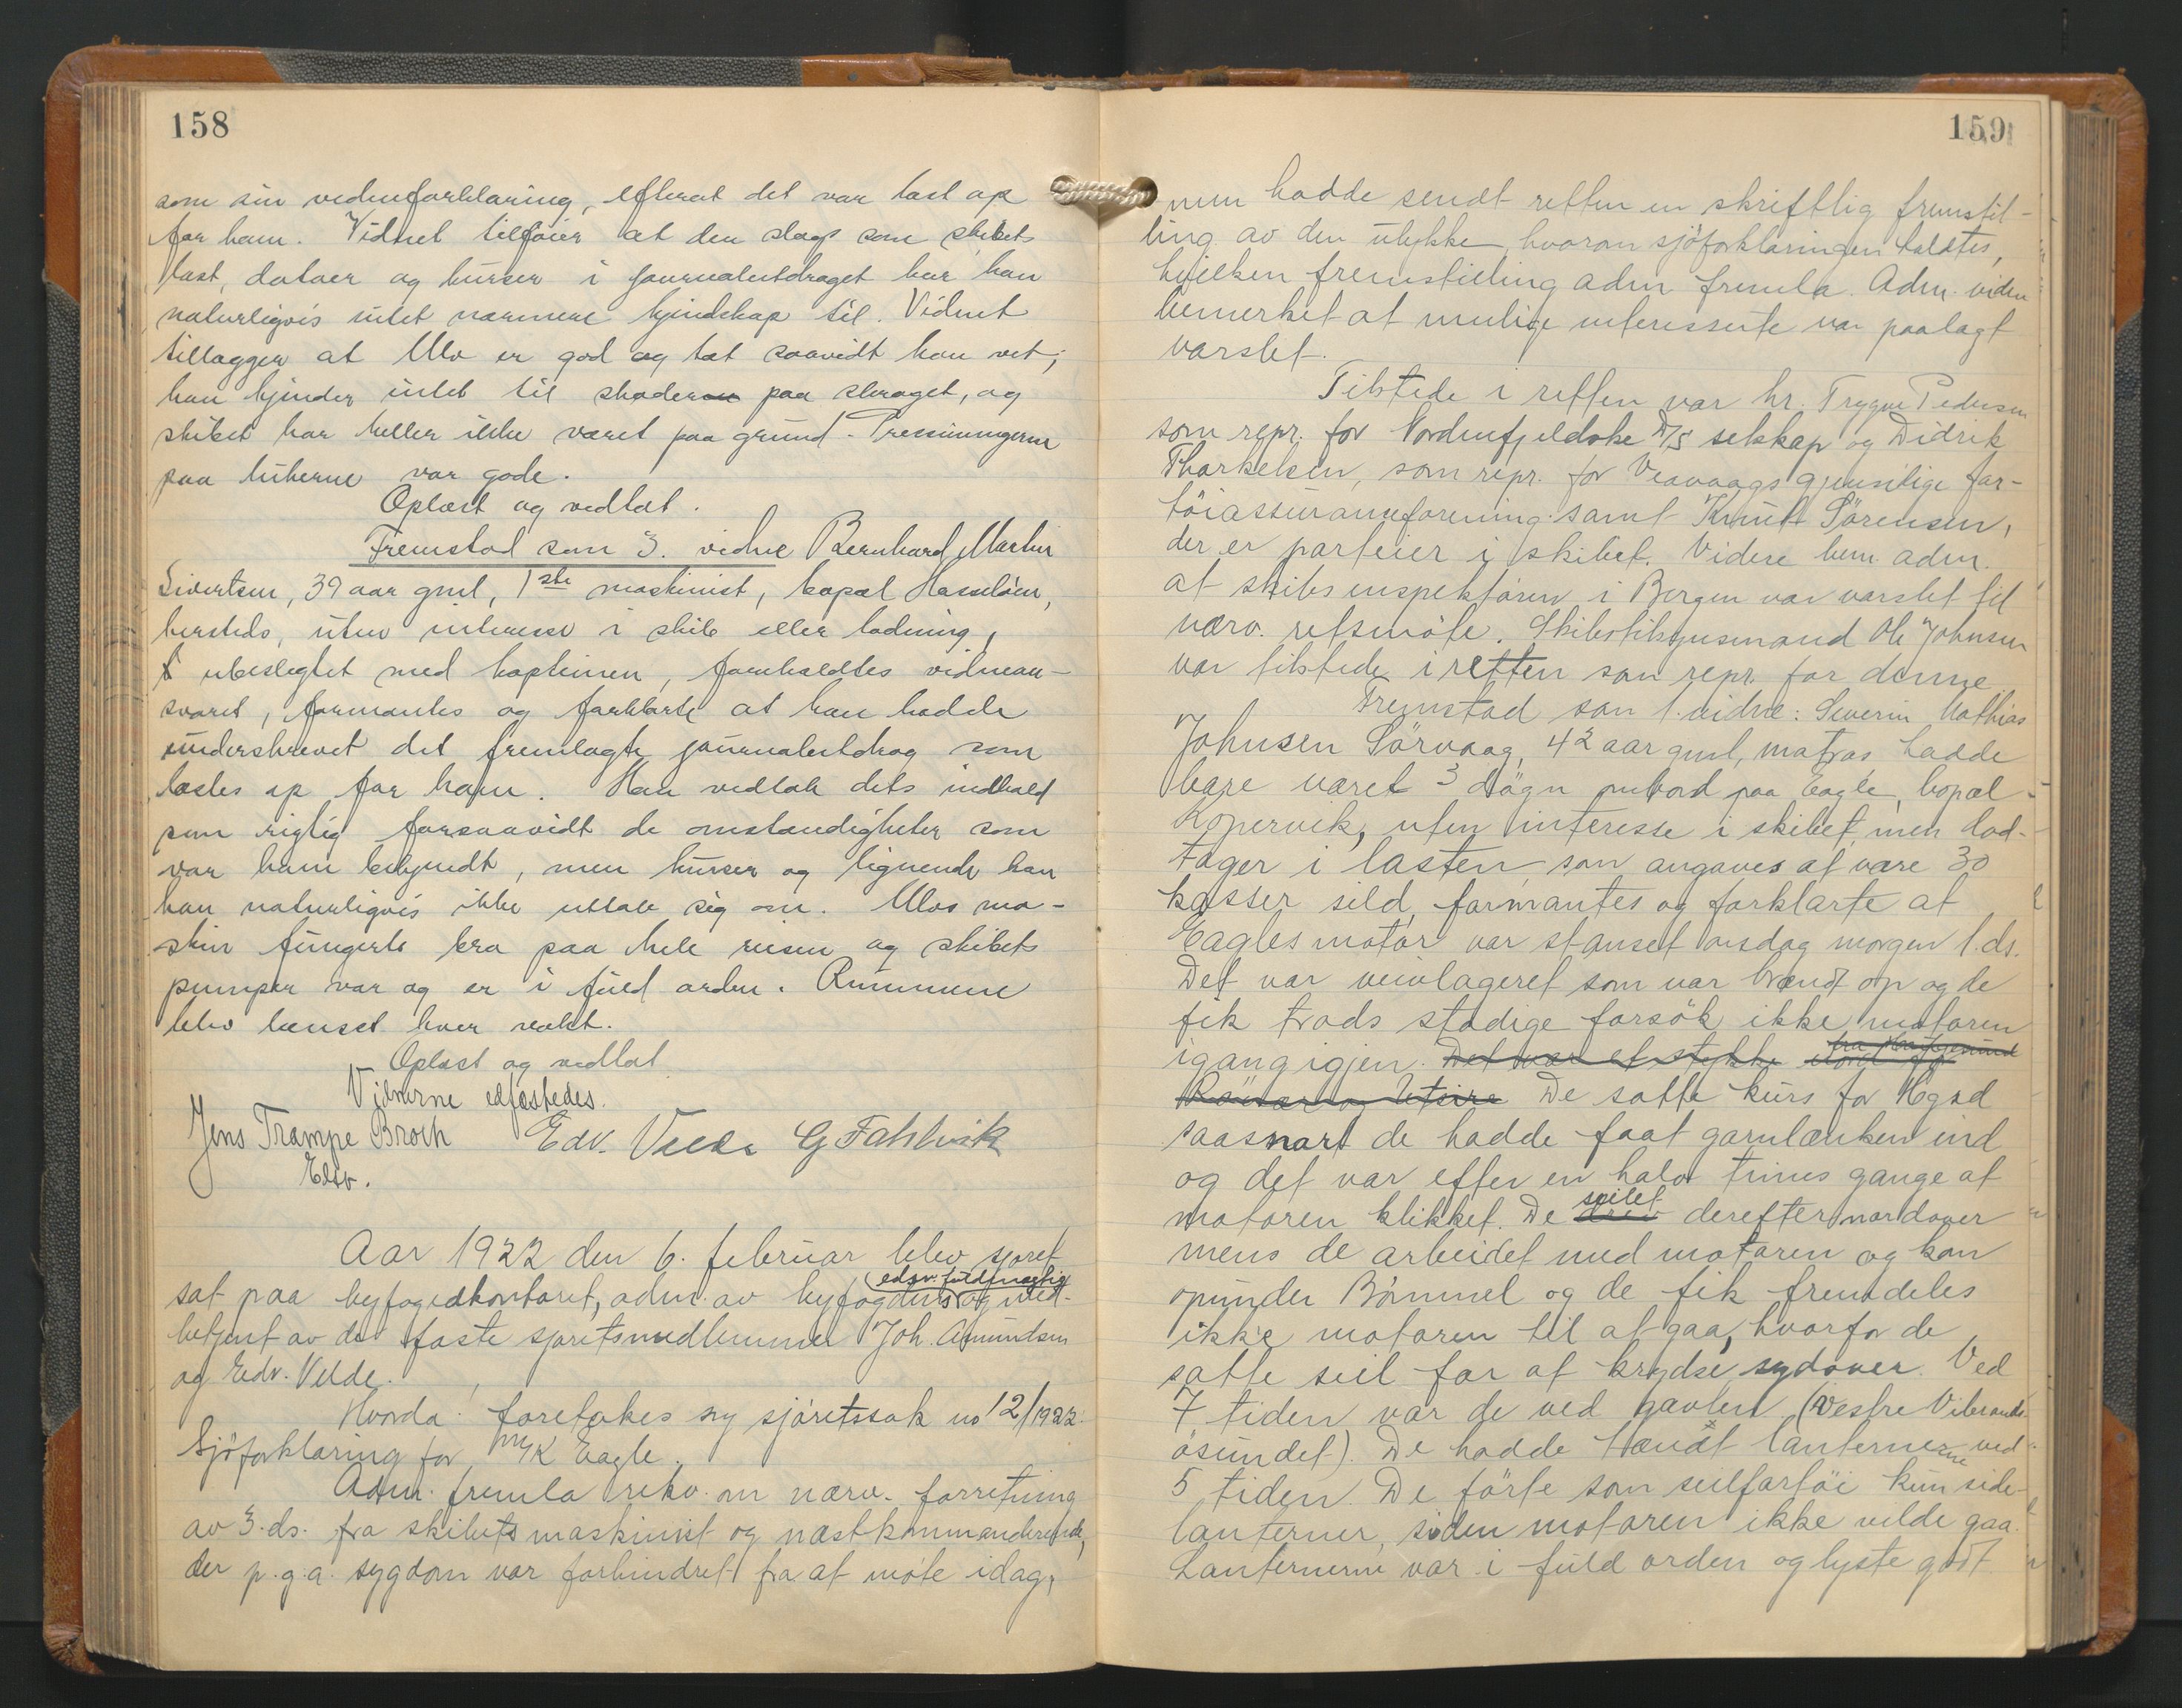 158
som sin vidneforklaring, efterat det var læst op
for ham. Vidnet tilføier at den slags som skibets
last, datoer og kurser i journalutdraget har han
naturligvis intet nærmere kjendskap til. Vidnet
tillægger at Ulv er god og tæt saavidt han vet;
han kjender intet til skader paa skroget, og
skibet har heller ikke været paa grund. Presenningerne
paa lukerne var gode.
Oplæst og vedtat.
Fremstod som 3. vidne Bernhard Martin
Sivertsen, 39 aar gml, 1ste maskinist, bopæl Hasseløen,
hersteds, uten interesse i skib eller ladning,
ubeslegtet med kapteinen, foreholdtes vidnean-
svaret, formantes og forklarte at han hadde
underskrevet det fremlagte journalutdrag som
læstes op for ham. Han vedtok dets indhold
som rigtig forsaavidt de omstændigheter som
var ham bekjendt, men kurser og lignende kan
han naturligvis ikke uttale sig om. Ulvs ma-
skin fungerte bra paa hele reisen og skibets
pumper var og er i fuld orden. Rummene
blev lænset hver vakt.
Oplæst og vedtat
Vidnerne edfæstedes.
Jens Trampe Broch Edv. Velde G Fahlvik
Edsv.
Aar 1922 den 6. februar blev sjøret
edsv. fuldmægtig
sat paa byfogedkontoret, adm. av byfogdens og med-
betjent av de faste sjøretsmedlemmer Joh. Amundsen
og Edv. Velde.
Hvorda: foretokes ny sjøretssak no 12/1922:
Sjöforklaring for M/K Eagle.
Adm. fremla rekv. om nærv. forretning
av 3. ds. fra skibets maskinist og næstkommanderende,
der p.g.a. sygdom var forhindret fra at møte idag,
159
men hadde sendt retten en skriftlig fremstil-
ling av den ulykke, hvorom sjöforklaringen holdtes,
hvilken fremstilling adm fremla. Adm. viden
bemerket at mulige interesserte var paalagt
varslet.
Tilstede i retten var hr. Trygve Pedersen
som repr. for Nordenfjeldske D/S selskap og Didrik
Thorkelsen, som repr. for Veavaags gjensidige far-
töiassuranceforening samt Knut Sörensen,
der er parteier i skibet. Videre bem. adm.
at skibsinspektören i Bergen var varslet til
nærv. retsmöte. Skibstilsynsmand Ole Johnsen
var tilstede i retten som repr. for denne
Fremstod som 1. vidne: Severin Mathias
Johnsen Sörvaag, 42 aar gml, matros hadde
bare været 3 dögn ombord paa Eagle, bopæl
Kopervik, uten interesse i skibet, men lod-
tager i lasten, som angaves at være 30
kasser sild, formantes og forklarte at
Eagles motor var stanset onsdag morgen 1. ds.
Det var veivlageret som var brændt op og de
fik trods stadige forsök ikke motoren
igang igjen. Det var et stykke nord for fra Haugesund
Röværog Utsire De satte kurs for Hgsd
saasnart de hadde faat garnlænken ind
og det var efter en halv times gange at
motoren klikket. De drev seilet derefter nordover
mens de arbeidet med motoren og kom
opunder Bömmel og de fik fremdeles
ikke motoren til at gaa, hvorfor de
satte seil for at krydse sydover. Ved
7 tiden var de ved gavlen (vestre Vibrands-
ösundet). De hadde tændt lanternerne ved
5 tiden. De förte som seilfartöi kun side-
lanterner, siden motoren ikke vilde gaa.
Lanternerne var i fuld orden og lyste godt